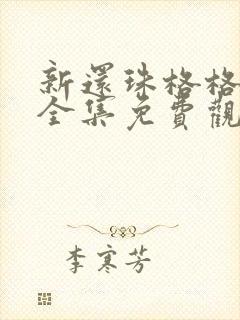 新還珠格格
全集免費觀
李寒芳